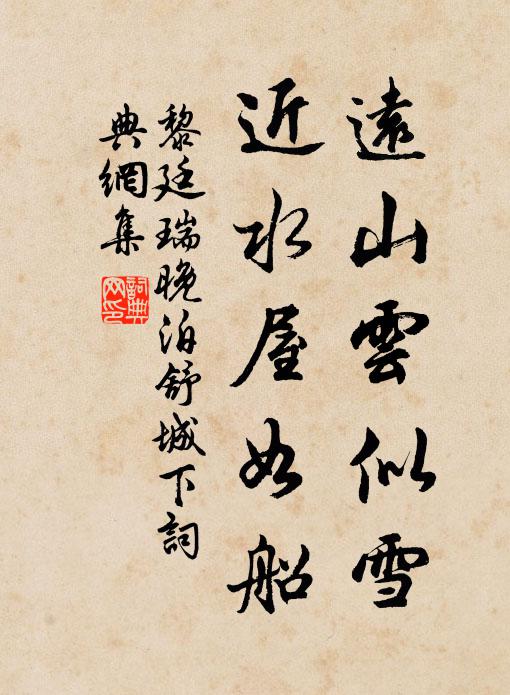 遠山雲似雪
近水屋如船
黎廷瑞晚泊舒城下詞
典網集
詞典
网印